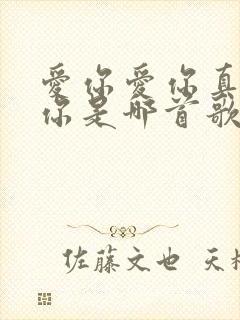 爱你爱你真
你是哪首歌
佐藤文也 天